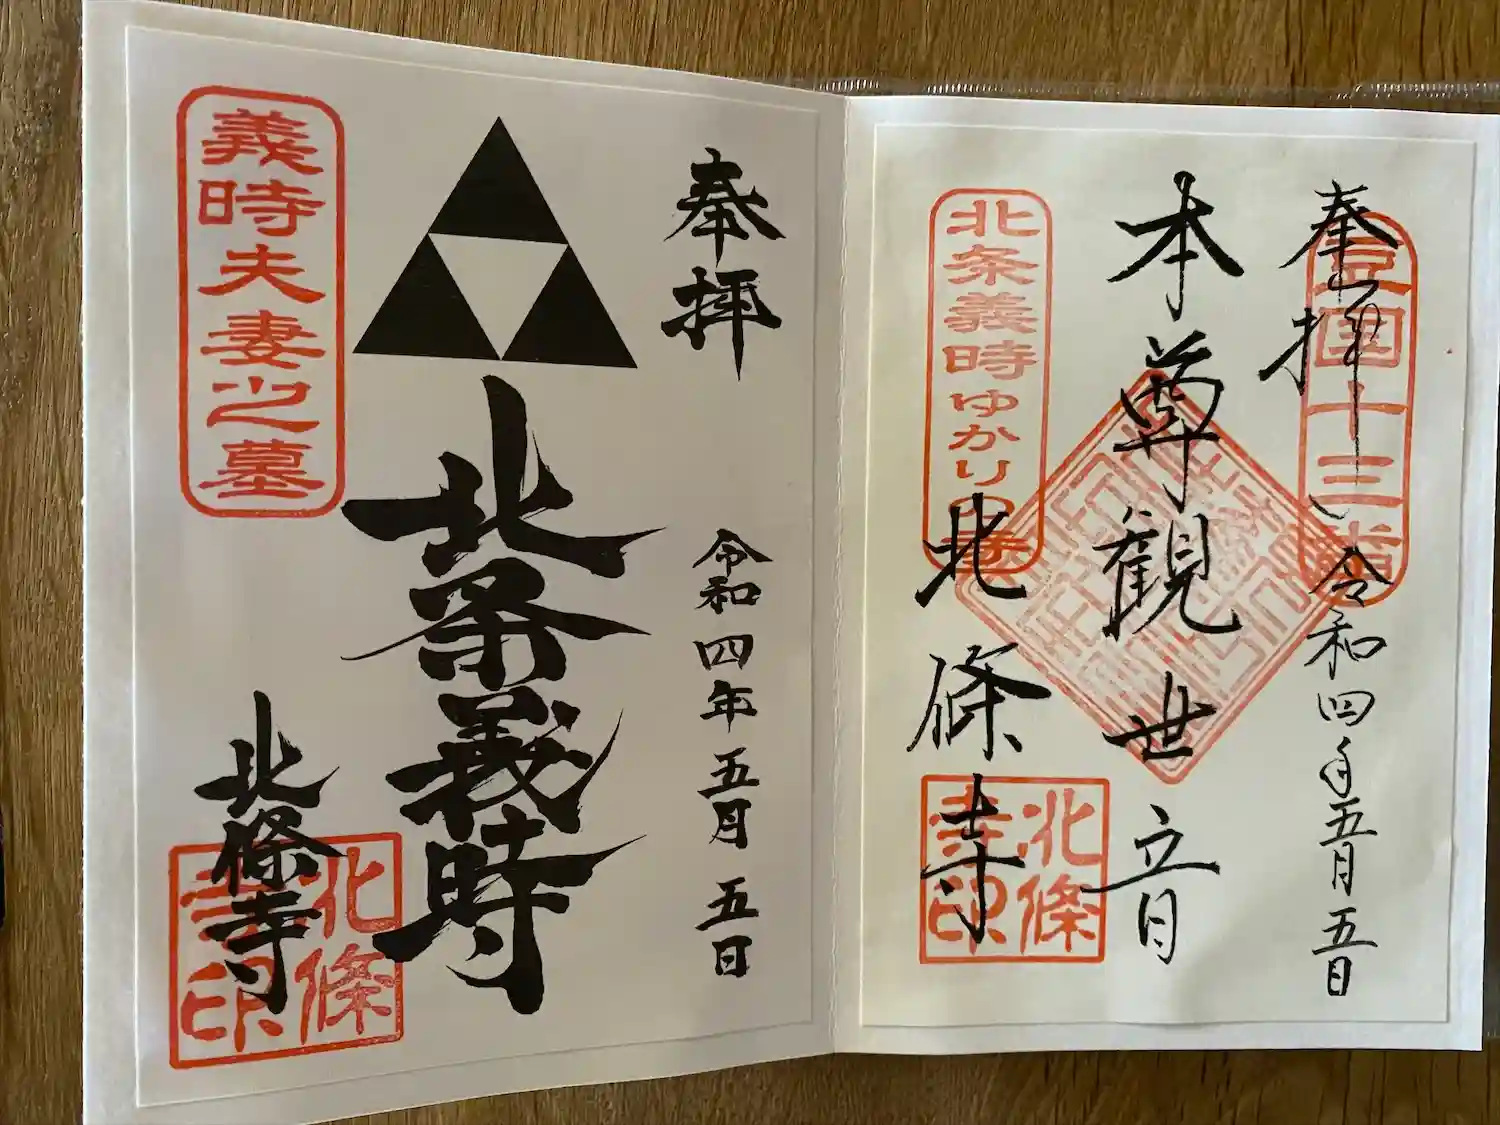 奉拝
令和四年五月五日
本尊観世音
北條寺
豆国十三番
北条義時ゆかりの寺
北條寺印
奉拝
令和四年五月五日
北条義時
北條寺
義時夫妻之墓
北條寺印